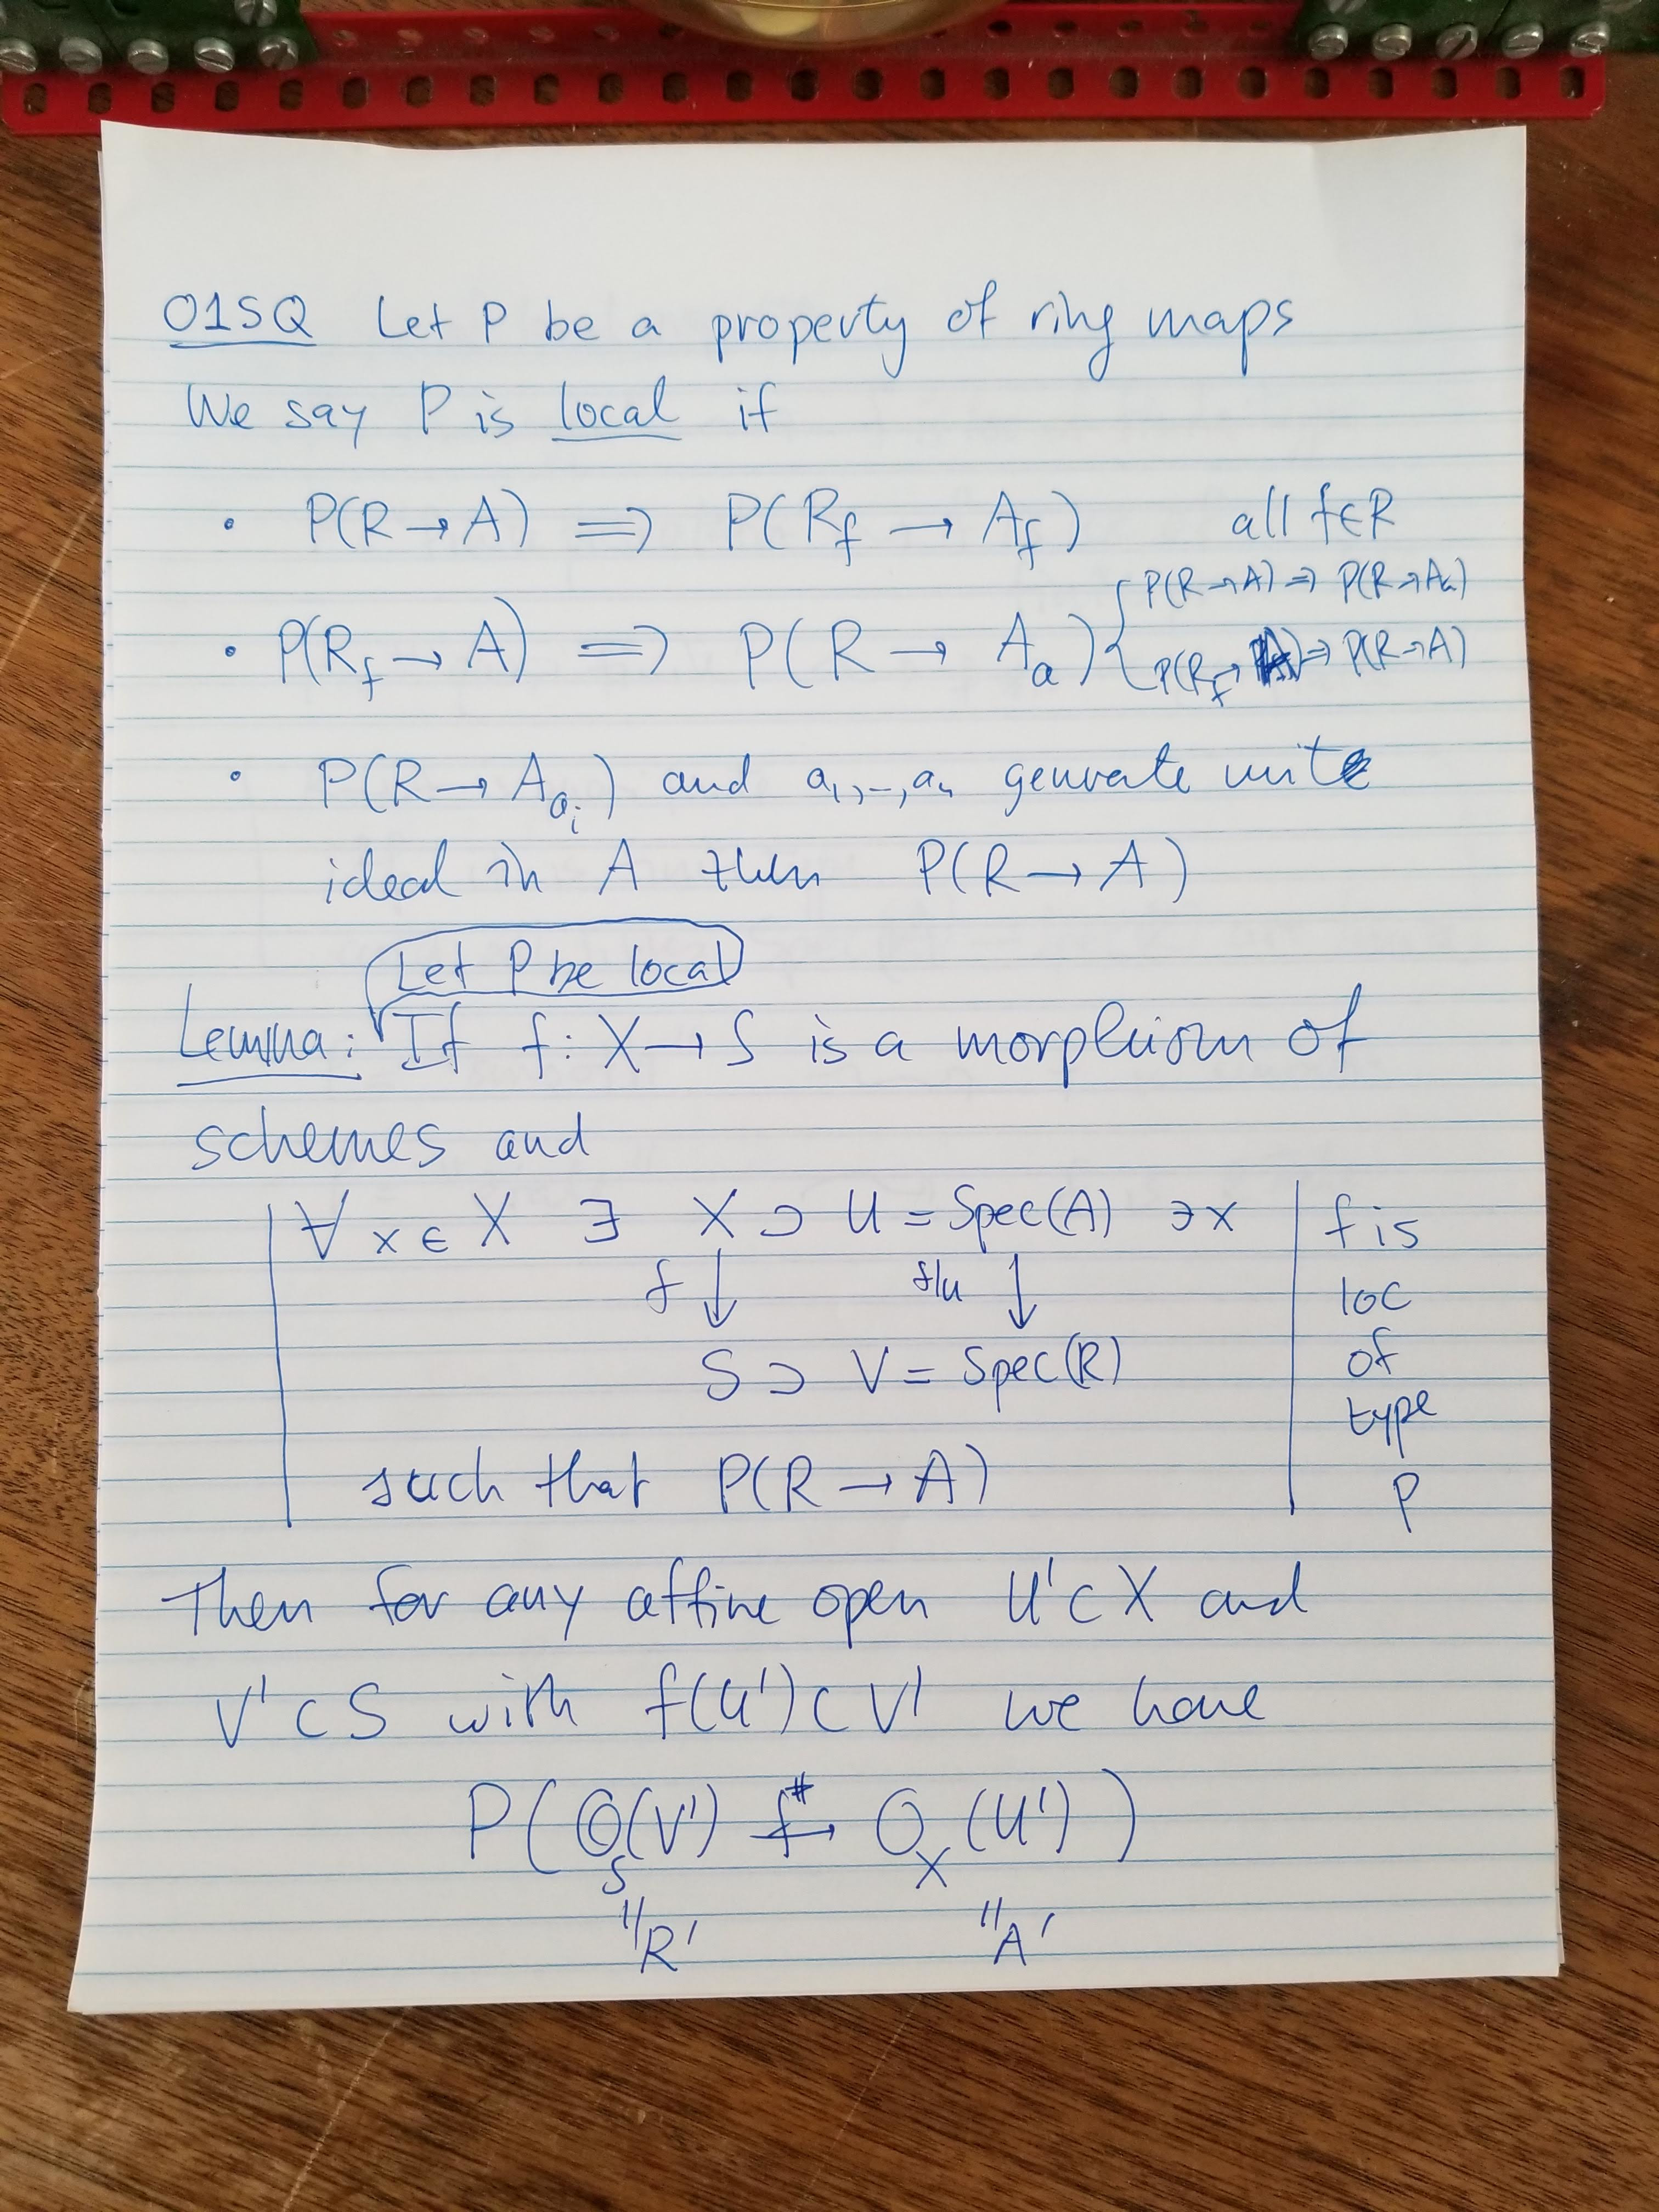 01SQ Let P be a property of ring maps
We say P is local if
• P(R → A) ⟹ P(R_f → A_f) all f∈R
• P(R_f → A) ⟹ P(R → A_a) { P(R→A) ⇒ P(R→A_a)
P(R_f → A) ⇒ P(R→A)
• P(R → A_{a_i}) and a_1,–,a_n generate unit
ideal in A then P(R → A)
Let P be local
Lemma: If f: X → S is a morphism of
schemes and
∀ x ∈ X ∃ X ⊃ U = Spec(A) ∋ x | f is
f ↓ f|u ↓ loc
S ⊃ V = Spec(R) of
type
such that P(R → A) P
Then for any affine open U' ⊂ X and
V' ⊂ S with f(U') ⊂ V' we have
P( O_S(V') f^# → O_X(U') )
"R' "A'